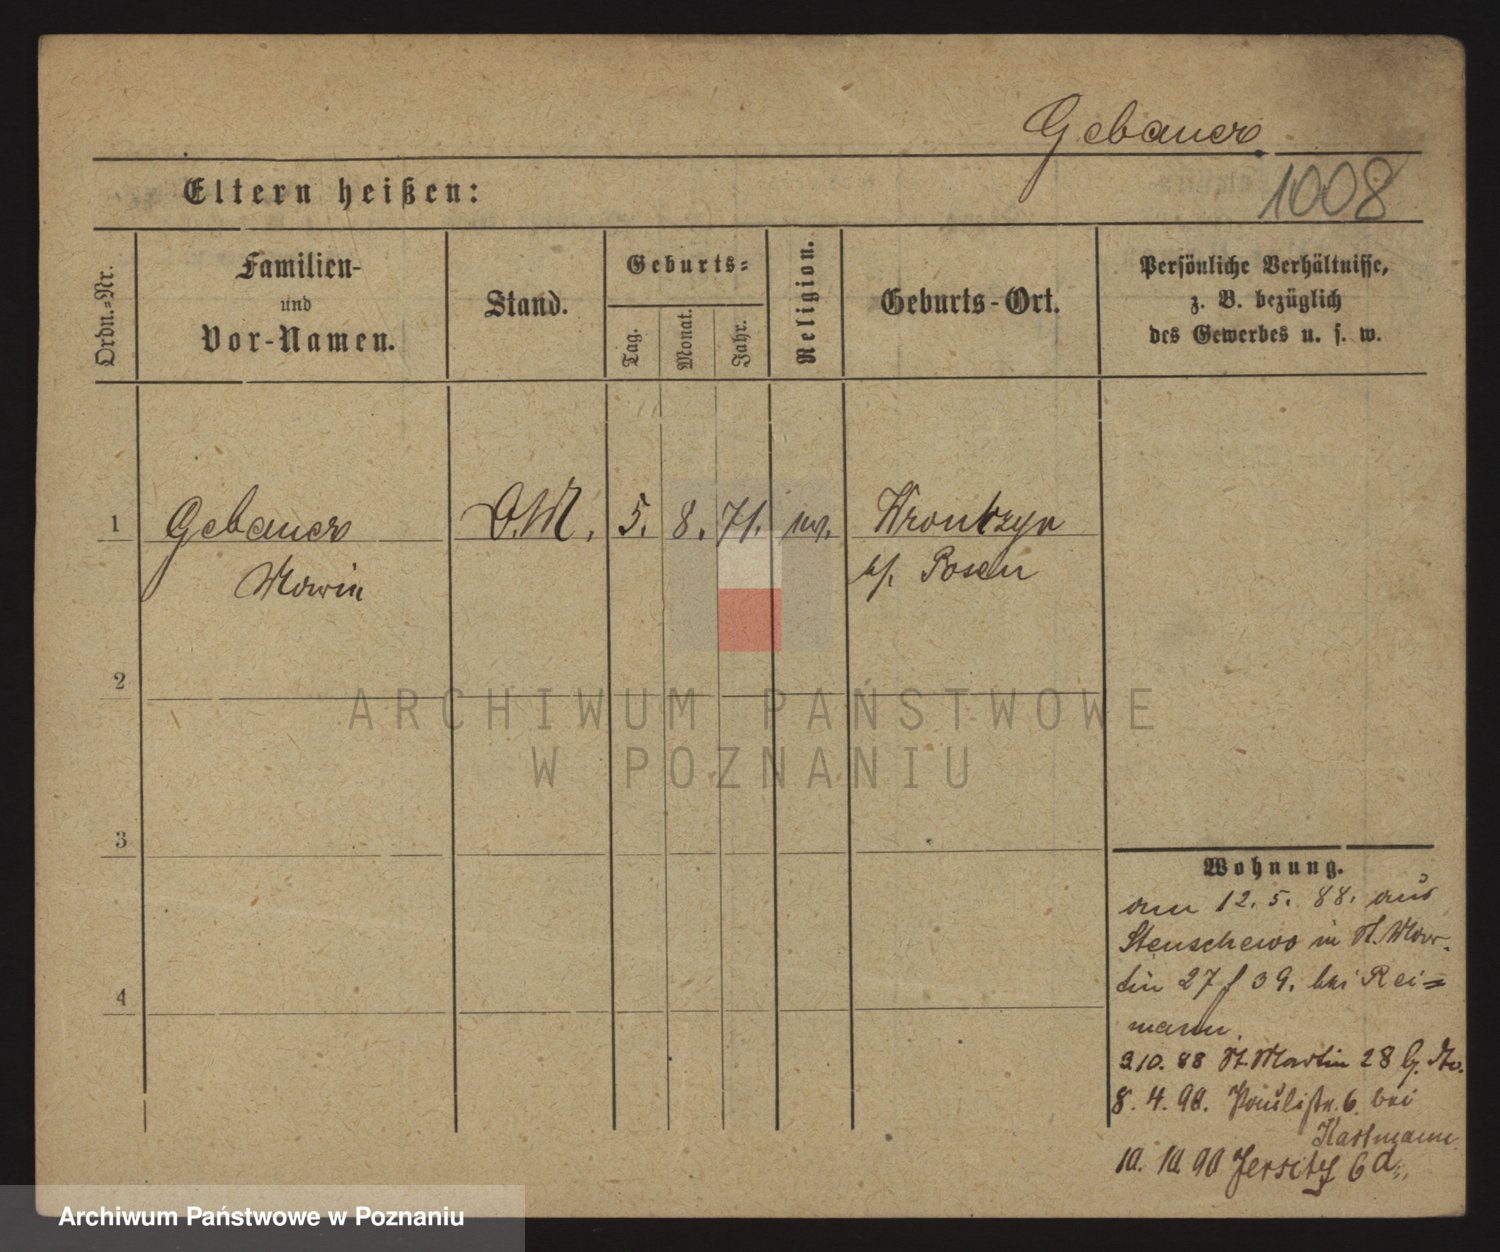 Gebauer
1008
Eltern heißen:
Ordn.-Nr.
Familien-
und
Vor-Namen.
Stand.
Geburts-
Tag.
Monat.
Jahr.
Religion.
Geburts-Ort.
Persönliche Verhältnisse,
z. B. bezüglich
des Gewerbes u. s. w.
1
Gebauer
Marie
D.M.
5.
8.
71.
ev.
Wronczyn
b/. Posen
2
ARCHIWUM PAŃSTWOWE
W POZNANIU
3
4
Wohnung.
am 12. 5. 88. aus
Stenschewo in St. Mar-
tin 27 f 39. bei Rei=
mann.
9.10. 88 St. Martin 28
8. 4. 90. Paulistr. 6 bei
Kastmann
10. 10. 90 Jersitz 6a.
Archiwum Państwowe w Poznaniu